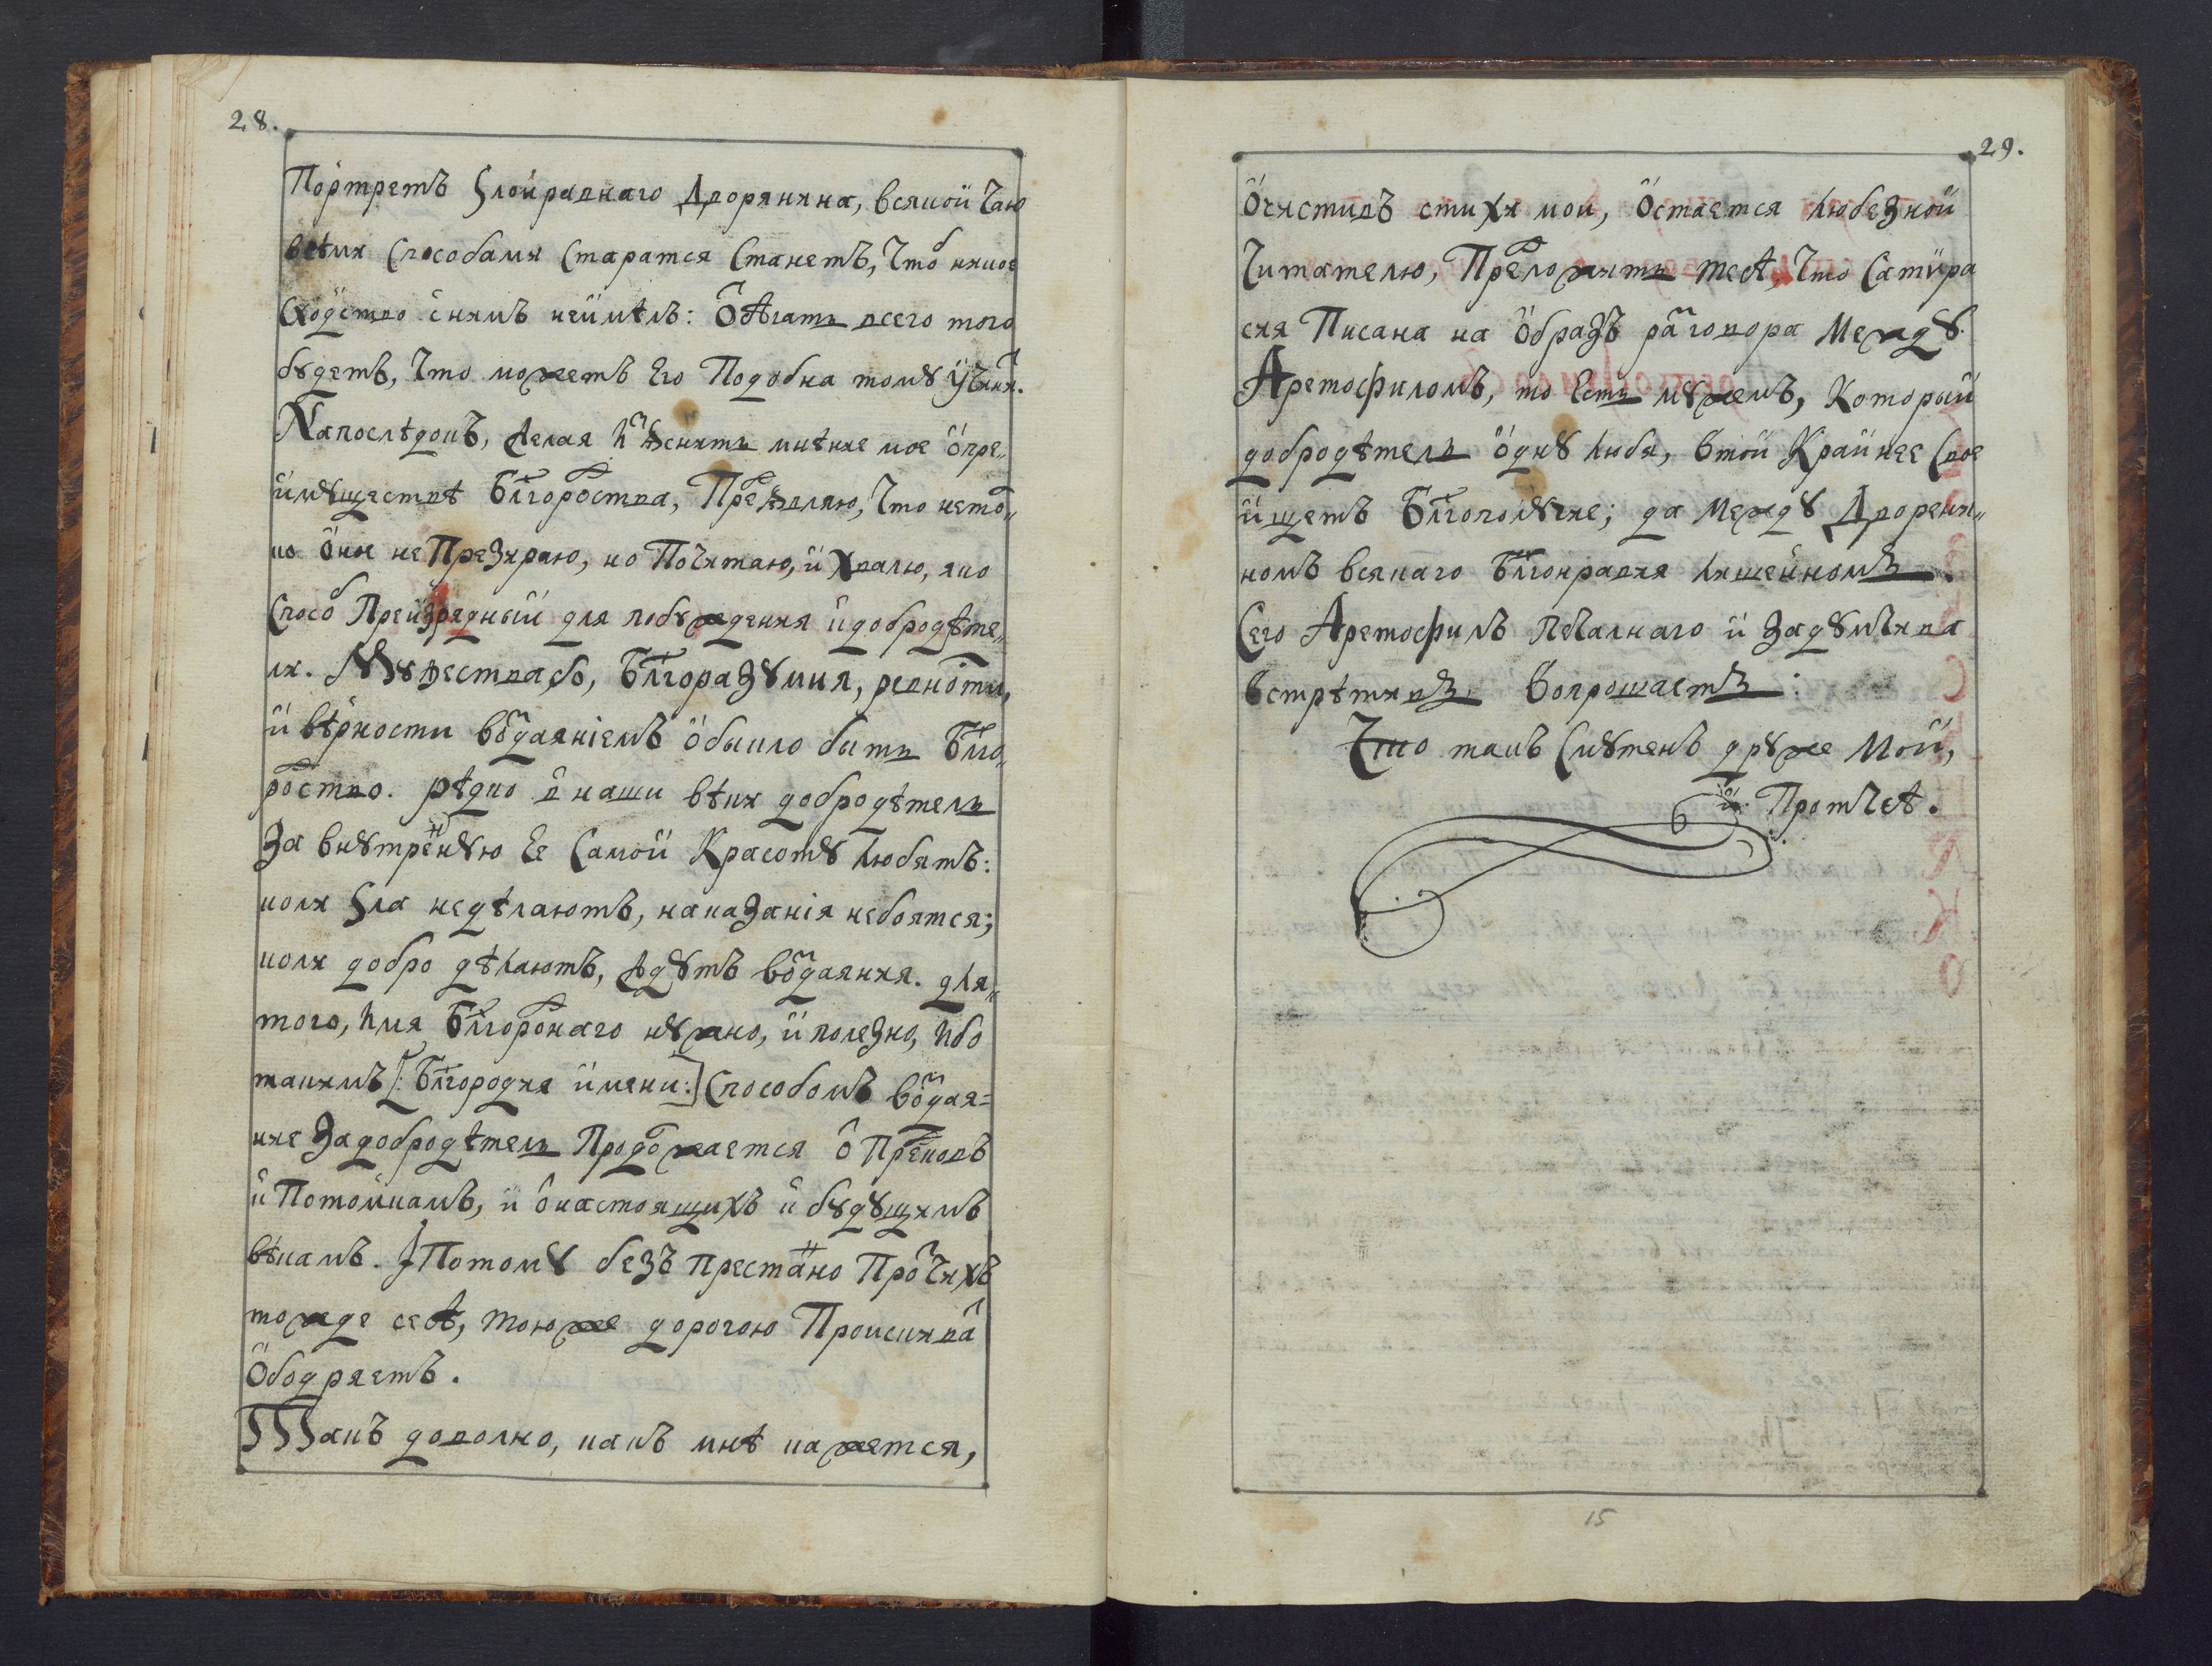 28.
Портретъ Ѕлонравнаго Дворянина, всякой чаю
всѣми Способами Старатся Станетъ, Чтоб никое
Сходство снимъ неимѣлъ: Ѿбѣгать всего того
бꙋдетъ, Что можетъ Его Подобна томꙋ Учинит.
Напослѣдокъ, желая Изъяснить мнѣние мое опре„
имꙋществѣ Блгородства, Предъявляю, Что нетол„
ко оное не Презираю, но Почитаю, и Хвалю, яко
Способ Преизрядный для побꙋждения и добродѣте„
ли. Мꙋжества бо, Блгоразꙋмия, ревности,
и вѣрности воздаяніемъ обыкло быть Блго„
родство. рѣдко в наши вѣки добродѣтель
За внꙋтреннꙋю Ее Самой Красотꙋ Любятъ:
коли Ѕла недѣлаютъ, наказанія небоятся;
коли добро дѣлаютъ, ждꙋтъ воздаяния. для„
того, Имя Блгородного нꙋжно, и полезно, Ибо
такимъ [: Блгородия имени:] Способомъ воздая=
ние За добродѣтель Продолжается о Предковъ
и Потомкамъ, и о настоящихъ и бꙋдꙋщимъ
вѣкамъ. И Потомꙋ безъ престанно Протчихъ
тожде себѣ, тоюже дорогою Проискиват
Ободряетъ.
Такъ доволно, какъ мнѣ кажется,
29.
Очистивъ стихи мои, Остается Любезной
Читателю, Предложить тебѣ, Что Сатѵра
сия Писана на Образъ разговора Междꙋ
Аретофиломъ, то Есть мꙋжемъ, Который
добродѣтель однꙋ Любя, втой Крайнее Свое
ищетъ Блгополꙋчие; да Междꙋ Дворени„
номъ всякаго Блгонравия Лишенномъ.
Сего Аретофилъ Печалнаго и Задꙋмчива
встрѣтивъ Вопрошаетъ:
Что такъ Смꙋтенъ дрꙋже Мой,
и Протчеѣ.
15